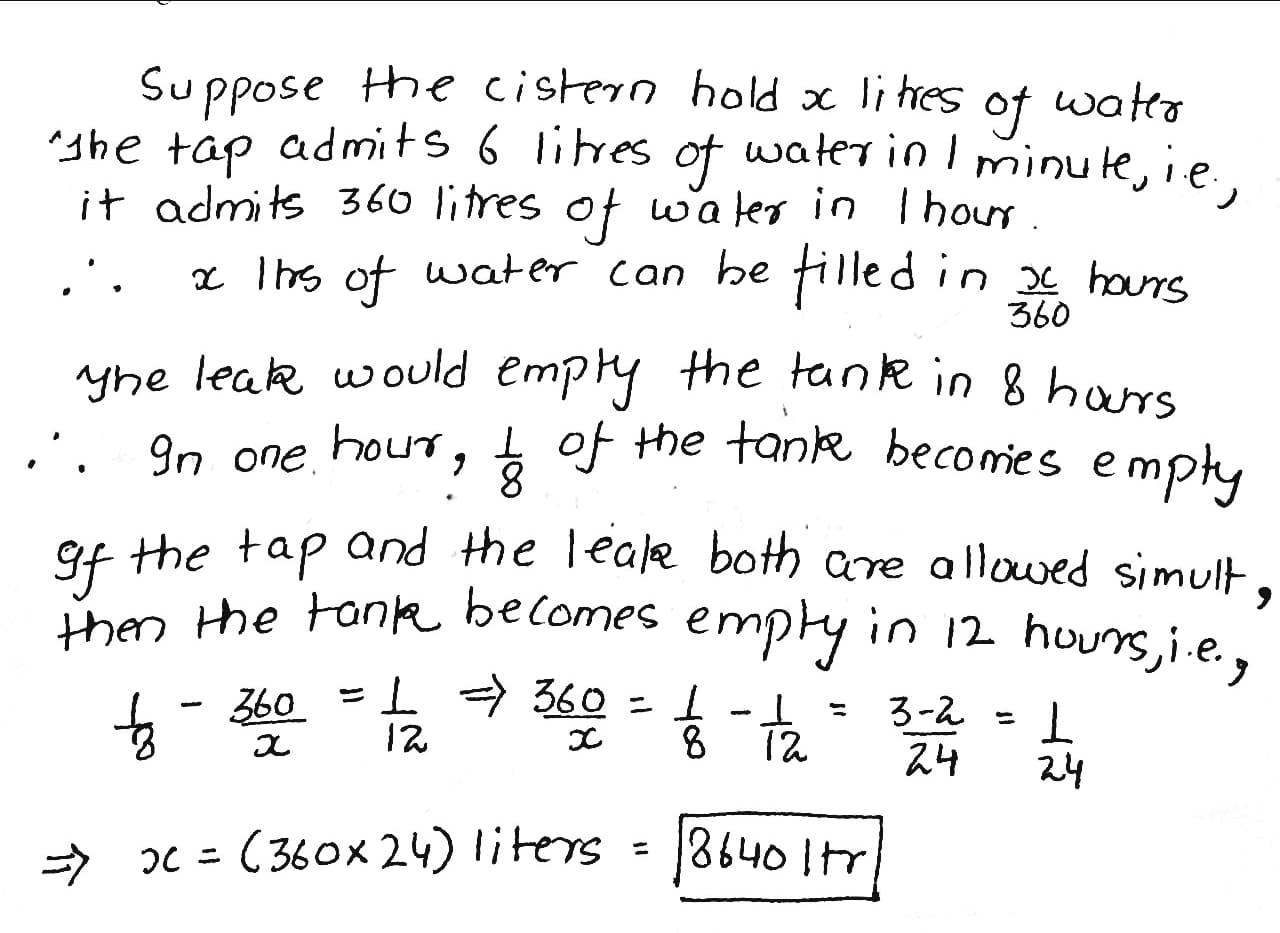 Suppose the cistern hold x litres of water
The tap admits 6 litres of water in 1 minute, i.e.,
it admits 360 litres of water in 1 hour.
∴ x ltrs of water can be filled in x/360 hours
The leak would empty the tank in 8 hours
∴ In one hour, 1/8 of the tank becomes empty
If the tap and the leak both are allowed simult,
then the tank becomes empty in 12 hours, i.e.,
1/8 - 360/x = 1/12 ⇒ 360/x = 1/8 - 1/12 = 3-2/24 = 1/24
⇒ x = (360×24) liters = 8640 ltr